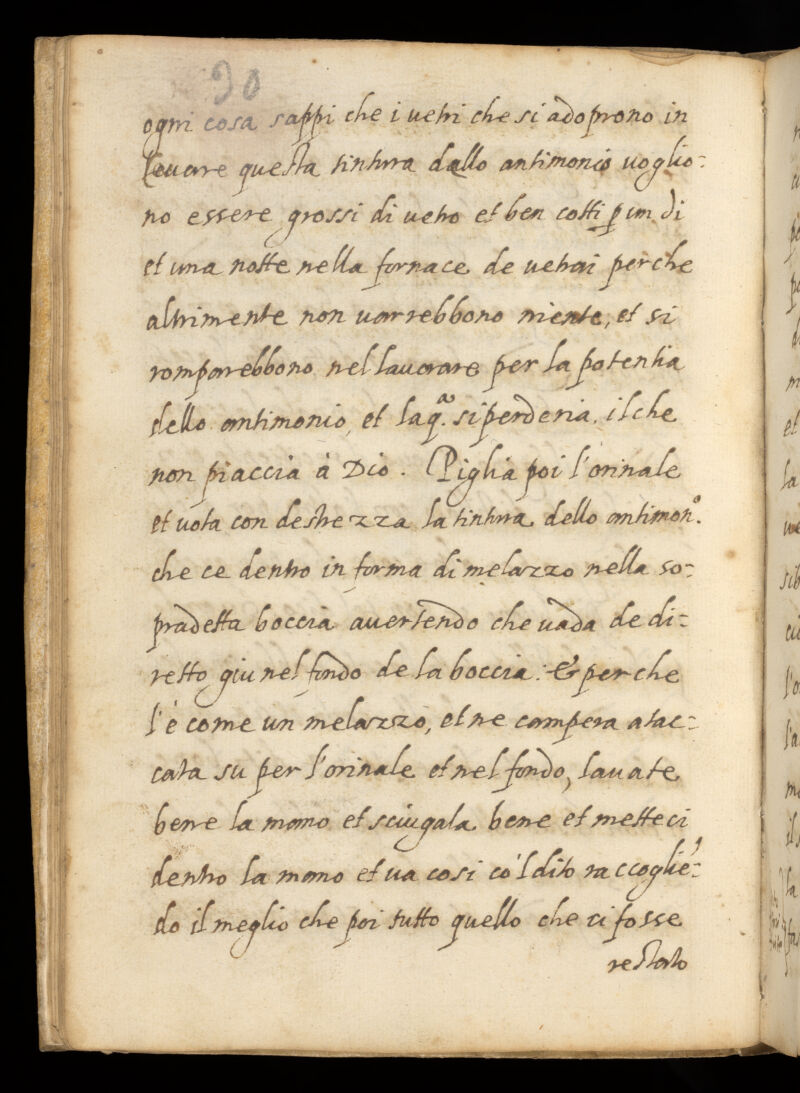 90
ogni cosa sappi che i uetri che si adoprono in
leuare questa tintura dallo antimonio uoglio:
no essere grossi di uetro et ben cotti p̱ un dì
et una notte nella fornace de uetrai perche
altrimente non uarrebbono niente, et si
romparebbono nel lauorare per la potentia
dello antimonio, et la q.ª si perderia. il che
non piaccia à Dio. Piglia poi l'orinale
et uota con destrezza la tintura dello antimon.º
che ce dentro in forma di melazzo nella so:
pradetta boccia auertendo che uada de di:
retto giu nel fondo de la boccia: & perche
l'è come un melazzo, et ne campera atac:
cata su per l'orinale et nel fondo, lauate
bene la mano et sciugala bene et metteci
dentro la mano et ua cosi cò'l dito raccogliē:
do il meglio che poi tutto quello che ci fosse
restato